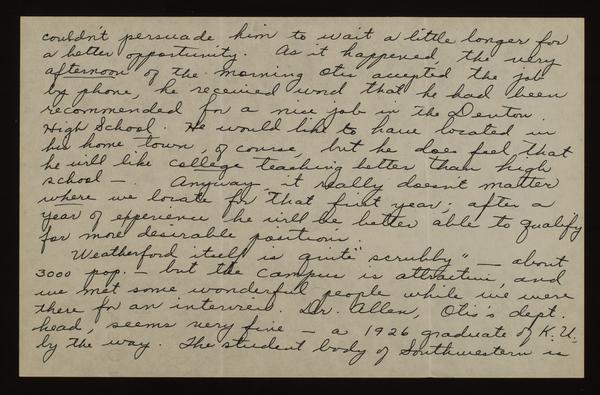 couldn't persuade him to wait a little longer for
a better opportunity. As it happened, the very
afternoon of the morning Otis accepted the job
by phone, he received word that he had been
recommended for a nice job in the Denton
High School. He would like to have located in
his home town, of course, but he does feel that
he will like college teaching better than high
school —. Anyway, it really doesn't matter
where we locate for that first year; after a
year of experience he will be better able to qualify
for more desirable positions.
Weatherford itself is quite "scrubby" — about
3000 pop. — but the campus is attractive, and
we met some wonderful people while we were
there for an interview. Dr. Allen, Otis's dept.
head, seems very fine — a 1926 graduate of K.U.,
by the way. The student body of Southwestern is